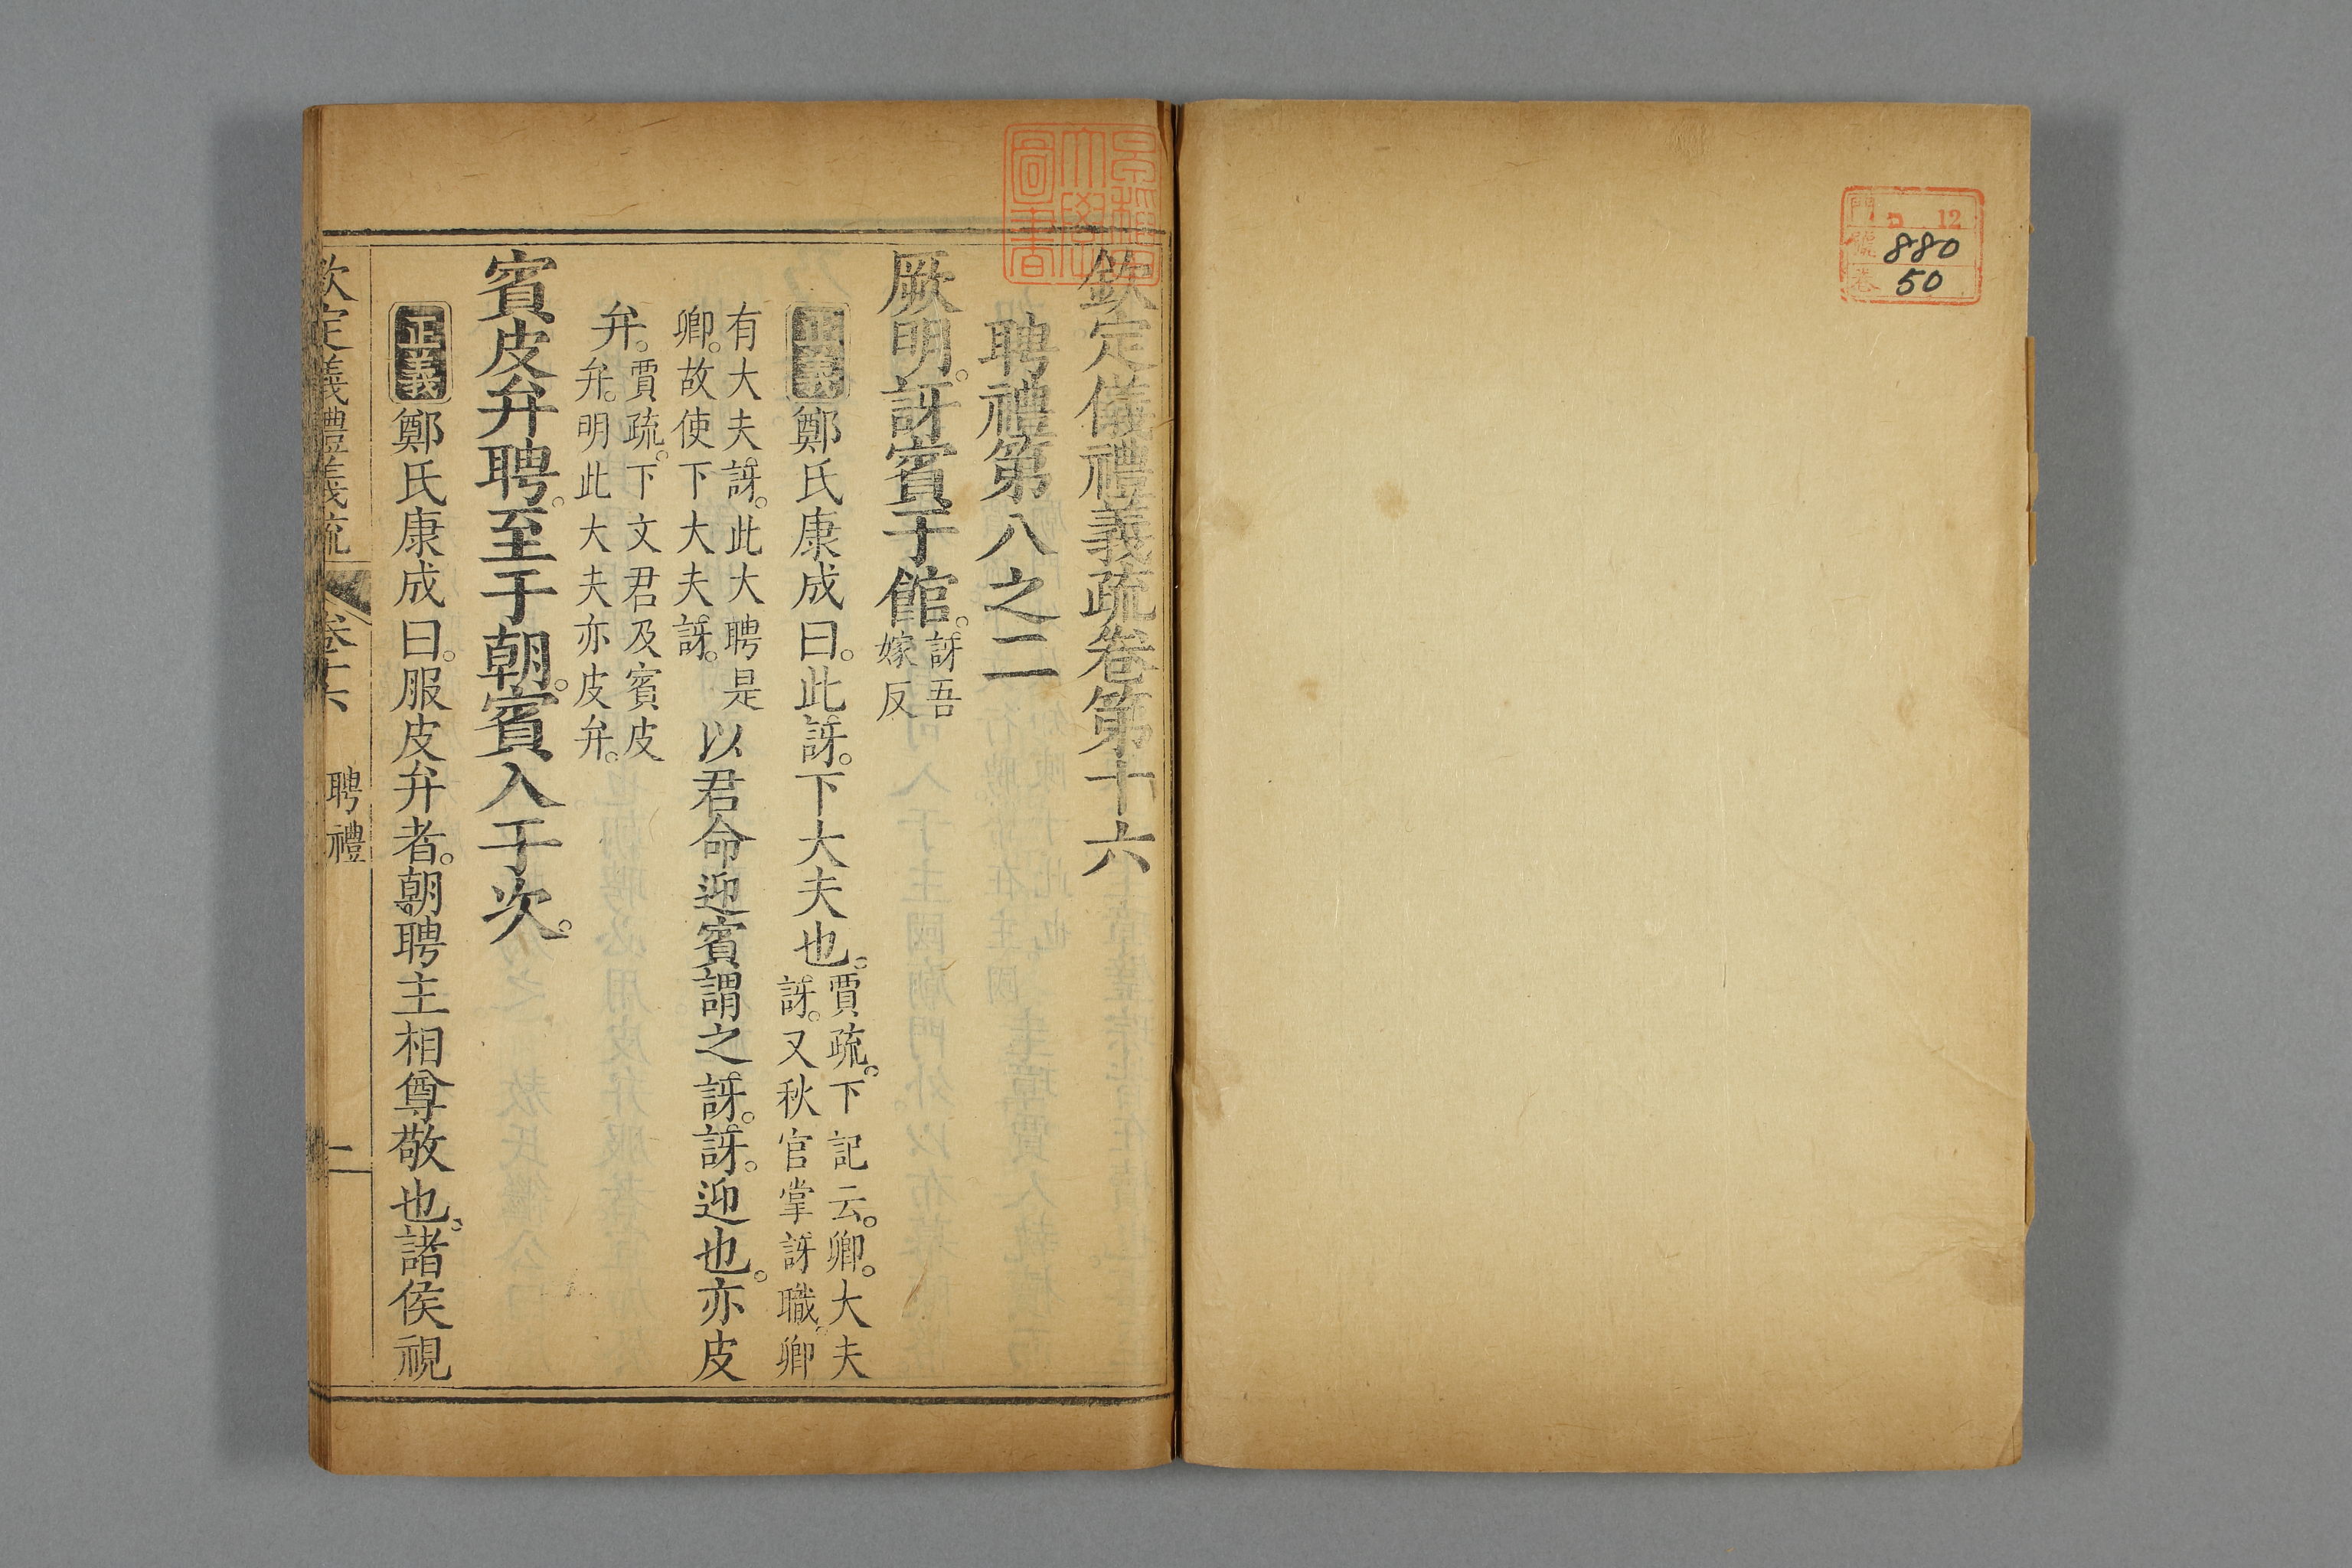 門 ロ 12
號 880
卷 50
早稻田大學圖書
欽定儀禮義疏卷第十六
聘禮第八之二
厥明。訝賓于館。訝吾嫁反
正義 鄭氏康成曰。此訝。下大夫也。賈疏。下記云。卿。大夫訝。又秋官掌訝職。卿
有大夫訝。此大聘是卿。故使下大夫訝。以君命迎賓謂之訝。訝。迎也。亦皮
弁。賈疏。下文君及賓皮弁。明此大夫亦皮弁。
賓皮弁聘。至于朝。賓入于次。
正義 鄭氏康成曰。服皮弁者。朝聘主相尊敬也。諸侯視
欽定義禮義疏 卷十六 聘禮 一